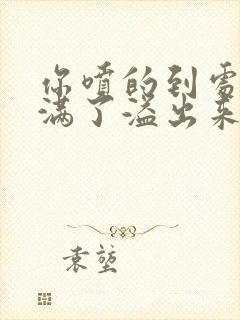 你喷的到处
满了溢出来
袁堃